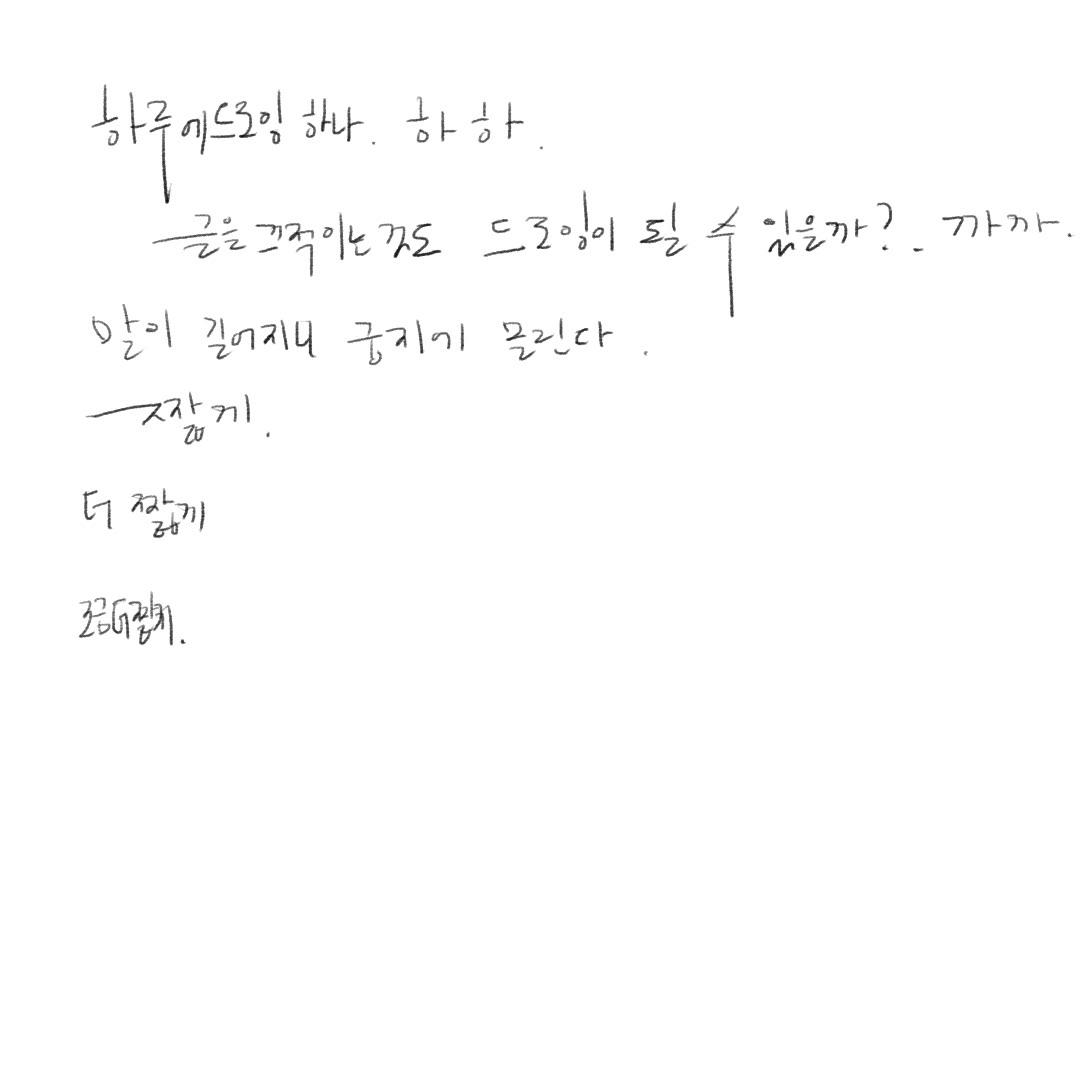 하루에드로잉 하나. 하하.
글을 끄적이는것도 드로잉이 될 수 있을까?. 까까.
말이 길어지니 궁지에 몰린다.
짧게.
더 짧게
조금더짧게.